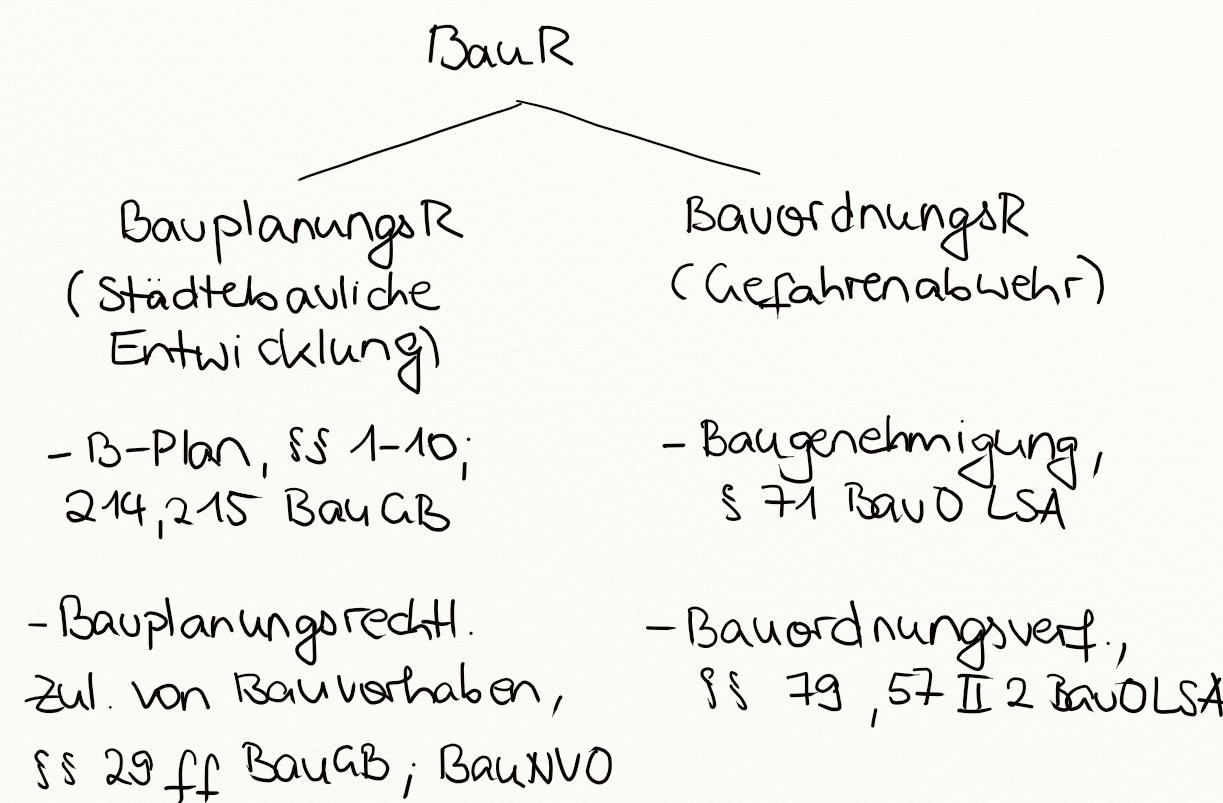 BauR
BauplanungsR
(Städtebauliche
Entwicklung)
- B-Plan, §§ 1-10;
214, 215 BauGB
- Bauplanungsrechtl.
Zul. von Bauvorhaben,
§§ 29 ff BauGB; BauNVO
BauordnungsR
(Gefahrenabwehr)
- Baugenehmigung,
§ 71 BauO LSA
- Bauordnungsverf.,
§§ 79, 57 II 2 BauO LSA